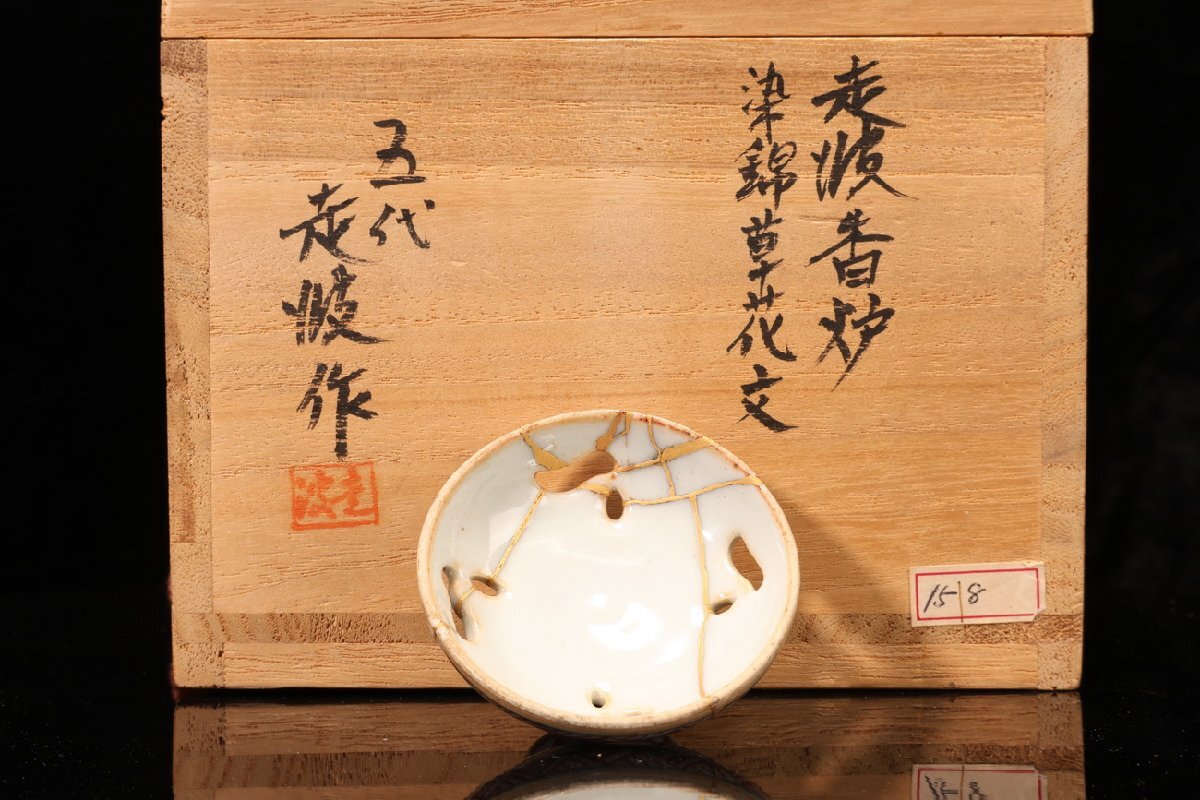 走波香炉
染錦草花文
五代
走波作
走波
15 8